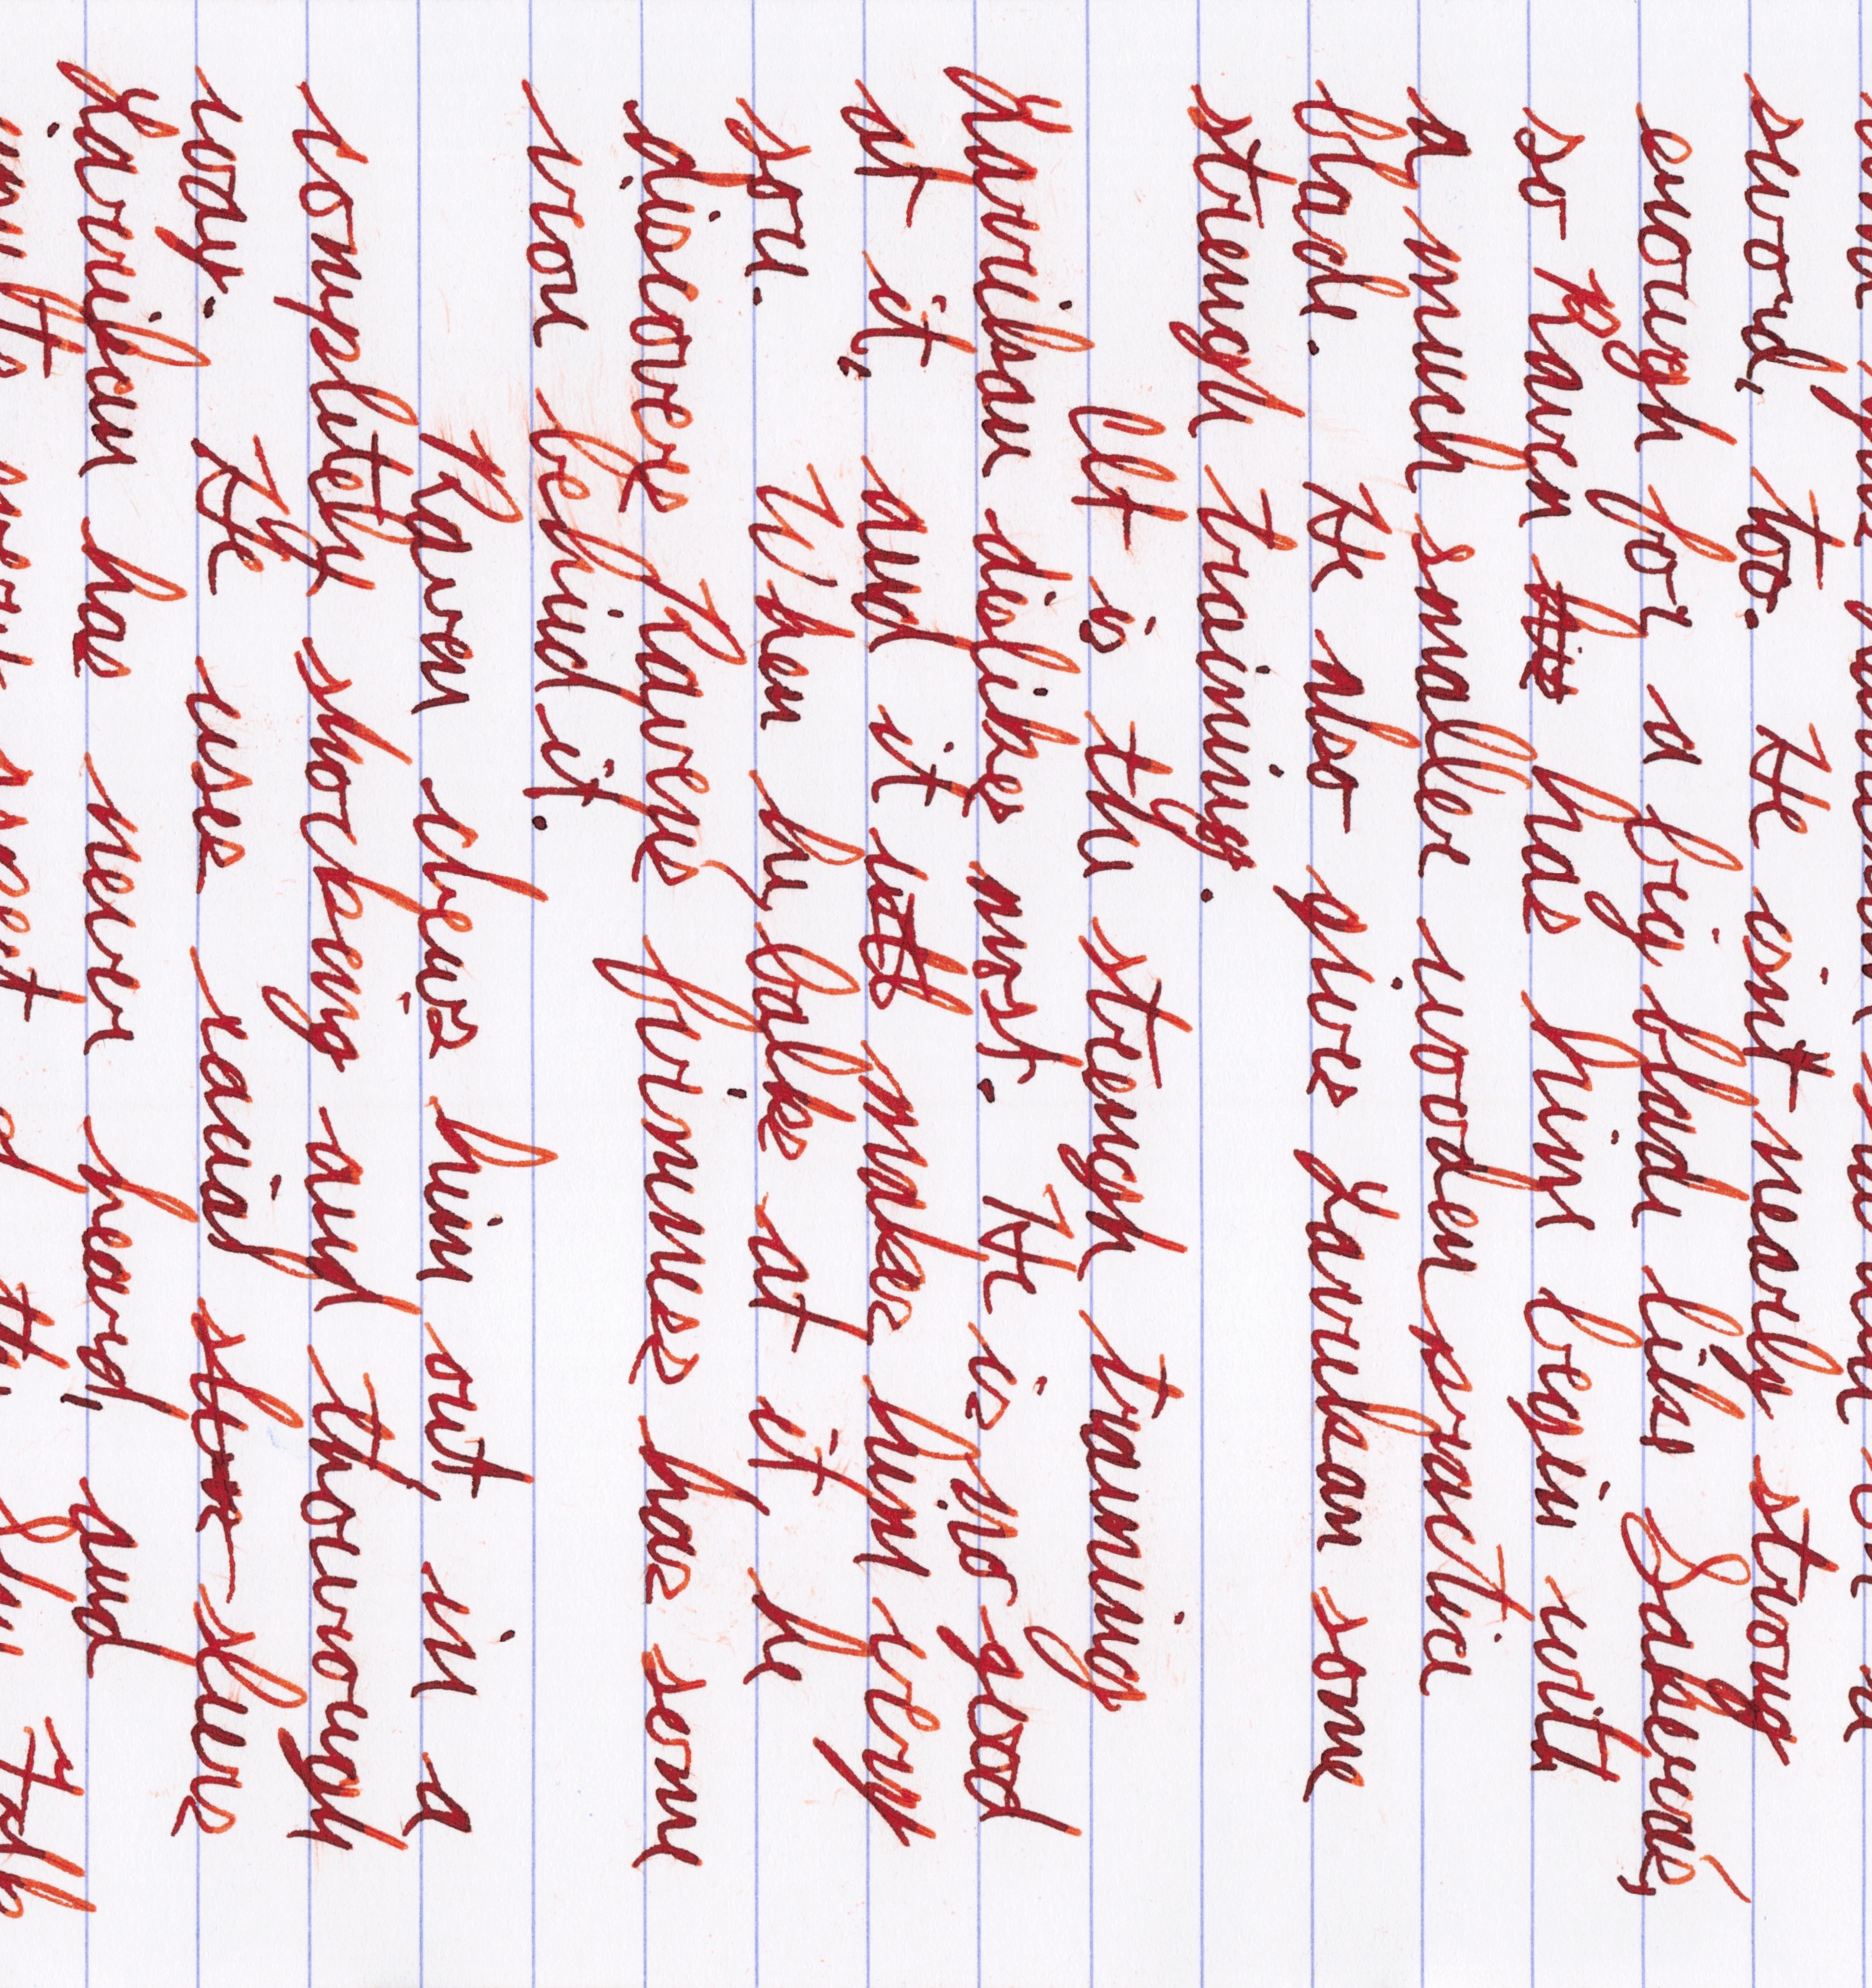 sword, too. He isn't nearly strong
enough for a big blade like
so Raven has him begin with
a much smaller wooden practice
blade. He also gives Larrikan some
strengh training.
It is the strengh training
Larrikan dislikes most. He is no good
at it, and it makes him very
sore. When he balks at it, he
discovers Raven's firmness has some
iron behind it.
Raven chews him out in a
completely shocking and thourough
way. He uses racial slurs
Larrikan has never heard, and